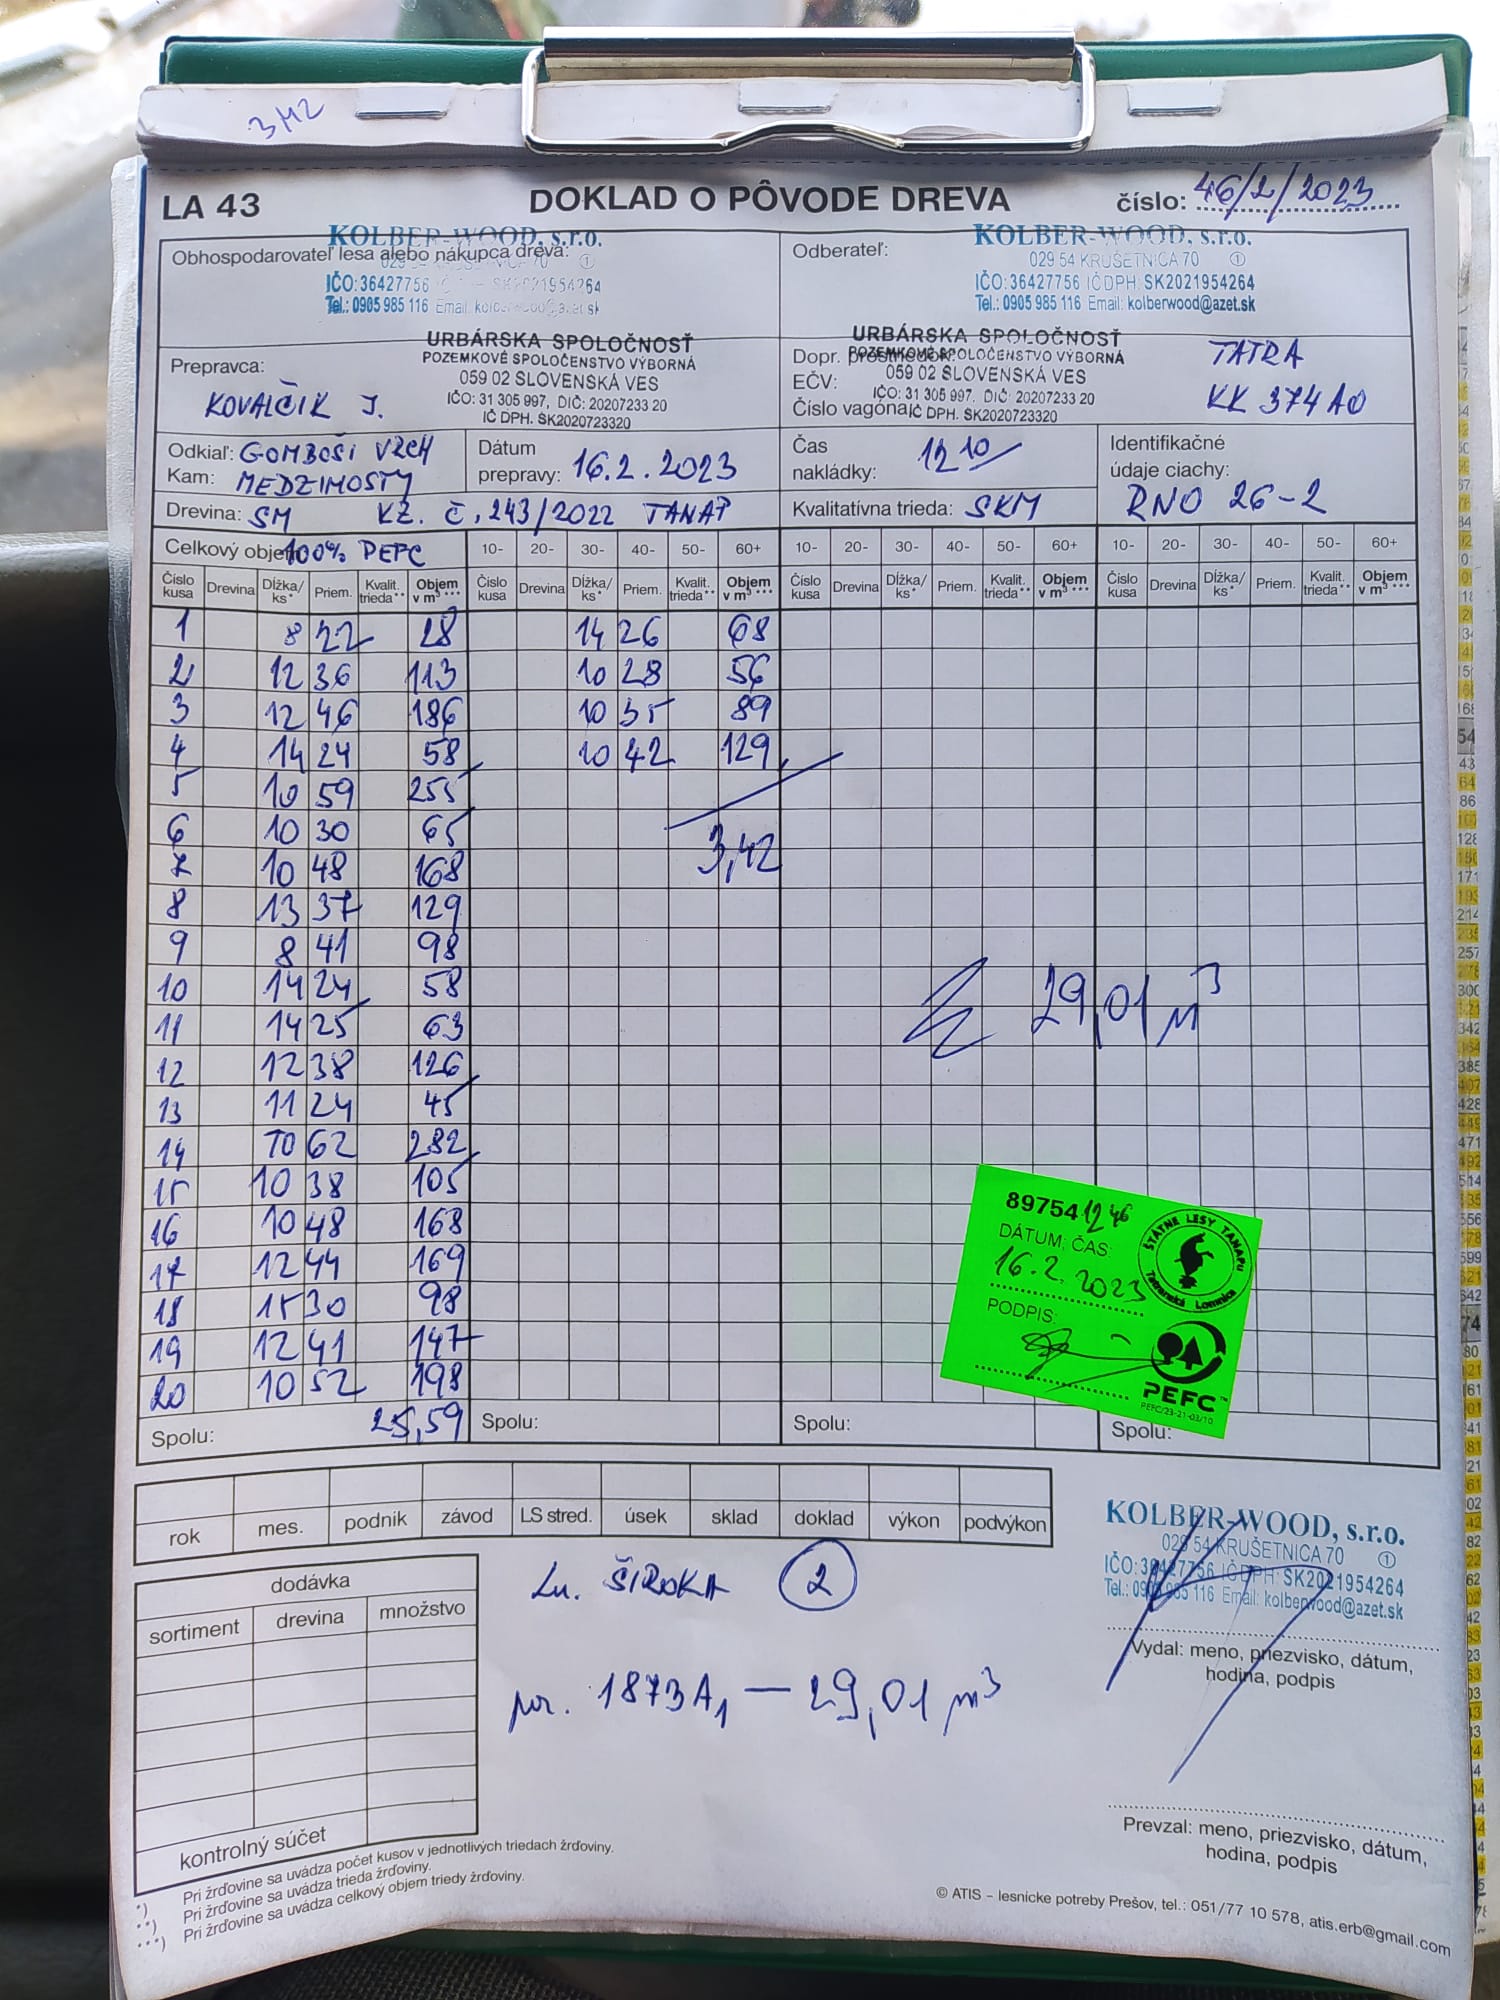 3M2
LA 43 DOKLAD O PÔVODE DREVA číslo: 46/2/2023
KOLBER-WOOD, s.r.o. KOLBER-WOOD, s.r.o.
Obhospodarovateľ lesa alebo nákupca dreva: Odberateľ:
029 54 KRUŠETNICA 70 1
029 54 KRUŠETNICA 70 1
IČO: 36427756 SK2021954264 IČO: 36427756 IČ DPH: SK2021954264
Tel.: 0905 985 116 Email: kolberwood@azet.sk Tel.: 0905 985 116 Email: kolberwood@azet.sk
URBÁRSKA SPOLOČNOSŤ URBÁRSKA SPOLOČNOSŤ
POZEMKOVÉ SPOLOČENSTVO VÝBORNÁ POZEMKOVÉ SPOLOČENSTVO VÝBORNÁ
059 02 SLOVENSKÁ VES 059 02 SLOVENSKÁ VES
IČO: 31 305 997, DIČ: 20207233 20 IČO: 31 305 997, DIČ: 20207233 20
IČ DPH. SK2020723320 IČ DPH. SK2020723320
Prepravca: Dopr. prostriedok: TATRA
KOVALČIK J. EČV: KK 374 AO
Číslo vagóna:
Odkiaľ: GOMBOŠI VRCH Dátum Čas Identifikačné
Kam: MEDZIMOSTY prepravy: 16.2.2023 nakládky: 12 10 údaje ciachy:
RNO 26-2
Drevina: SM KZ. č. 243/2022 TANAP Kvalitatívna trieda: SKM
Celkový objem 100% PEFC 10- 20- 30- 40- 50- 60+ 10- 20- 30- 40- 50- 60+ 10- 20- 30- 40- 50- 60+
Číslo kusa Drevina Dĺžka/ ks* Priem. Kvalit. trieda** Objem v m³*** Číslo kusa Drevina Dĺžka/ ks* Priem. Kvalit. trieda** Objem v m³*** Číslo kusa Drevina Dĺžka/ ks* Priem. Kvalit. trieda** Objem v m³*** Číslo kusa Drevina Dĺžka/ ks* Priem. Kvalit. trieda** Objem v m³***
1 8 22 28 14 26 68
2 12 36 113 10 28 56
3 12 46 186 10 35 89
4 14 24 58 10 42 129
5 10 59 255
6 10 30 65 3,42
7 10 48 168
8 13 37 129
9 8 41 98
10 14 24 58
11 14 25 63 29,01 m³
12 12 38 126
13 11 24 45
14 10 62 282
15 10 38 105
16 10 48 168
17 12 44 169
18 15 30 98
19 12 41 147
20 10 52 198
Spolu: 25,59 Spolu: Spolu: Spolu:
89754 12 46
DÁTUM, ČAS:
16.2.2023
PODPIS:
ŠTÁTNE LESY TANAPu
Tatranská Lomnica
PEFC™
PEFC/23-21-03/10
rok mes. podnik závod LS stred. úsek sklad doklad výkon podvýkon
KOLBER-WOOD, s.r.o.
029 54 KRUŠETNICA 70 1
IČO: 36427756 IČ DPH: SK2021954264
Tel.: 0905 985 116 Email: kolberwood@azet.sk
dodávka
sortiment drevina množstvo
kontrolný súčet
Lu. ŠIROKA 2
por. 1873A1 — 29,01 m³
Vydal: meno, priezvisko, dátum,
hodina, podpis
Prevzal: meno, priezvisko, dátum,
hodina, podpis
*) Pri žrďovine sa uvádza počet kusov v jednotlivých triedach žrďoviny.
**) Pri žrďovine sa uvádza trieda žrďoviny.
***) Pri žrďovine sa uvádza celkový objem triedy žrďoviny.
© ATIS – lesnícke potreby Prešov, tel.: 051/77 10 578, atis.erb@gmail.com